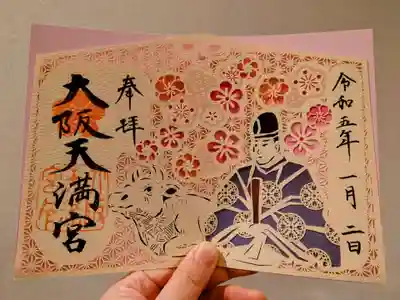 令和五年一月二日
奉拝
大阪天満宮